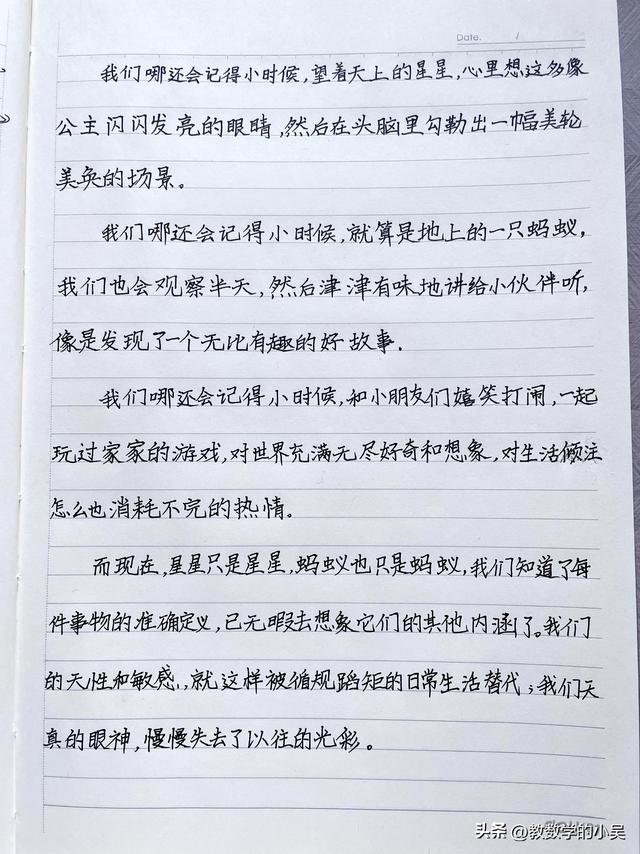 Date. /
我们哪还会记得小时候,望着天上的星星,心里想这多像
公主闪闪发亮的眼睛,然后在头脑里勾勒出一幅美轮
美奂的场景。
我们哪还会记得小时候,就算是地上的一只蚂蚁,
我们也会观察半天,然后津津有味地讲给小伙伴听,
像是发现了一个无比有趣的好故事.
我们哪还会记得小时候,和小朋友们嬉笑打闹,一起
玩过家家的游戏,对世界充满无尽好奇和想象,对生活倾注
怎么也消耗不完的热情。
而现在,星星只是星星,蚂蚁也只是蚂蚁,我们知道了每
件事物的准确定义,已无暇去想象它们的其他内涵了。我们
的天性和敏感,就这样被循规蹈矩的日常生活替代;我们天
真的眼神,慢慢失去了以往的光彩。
头条 @教数学的小吴